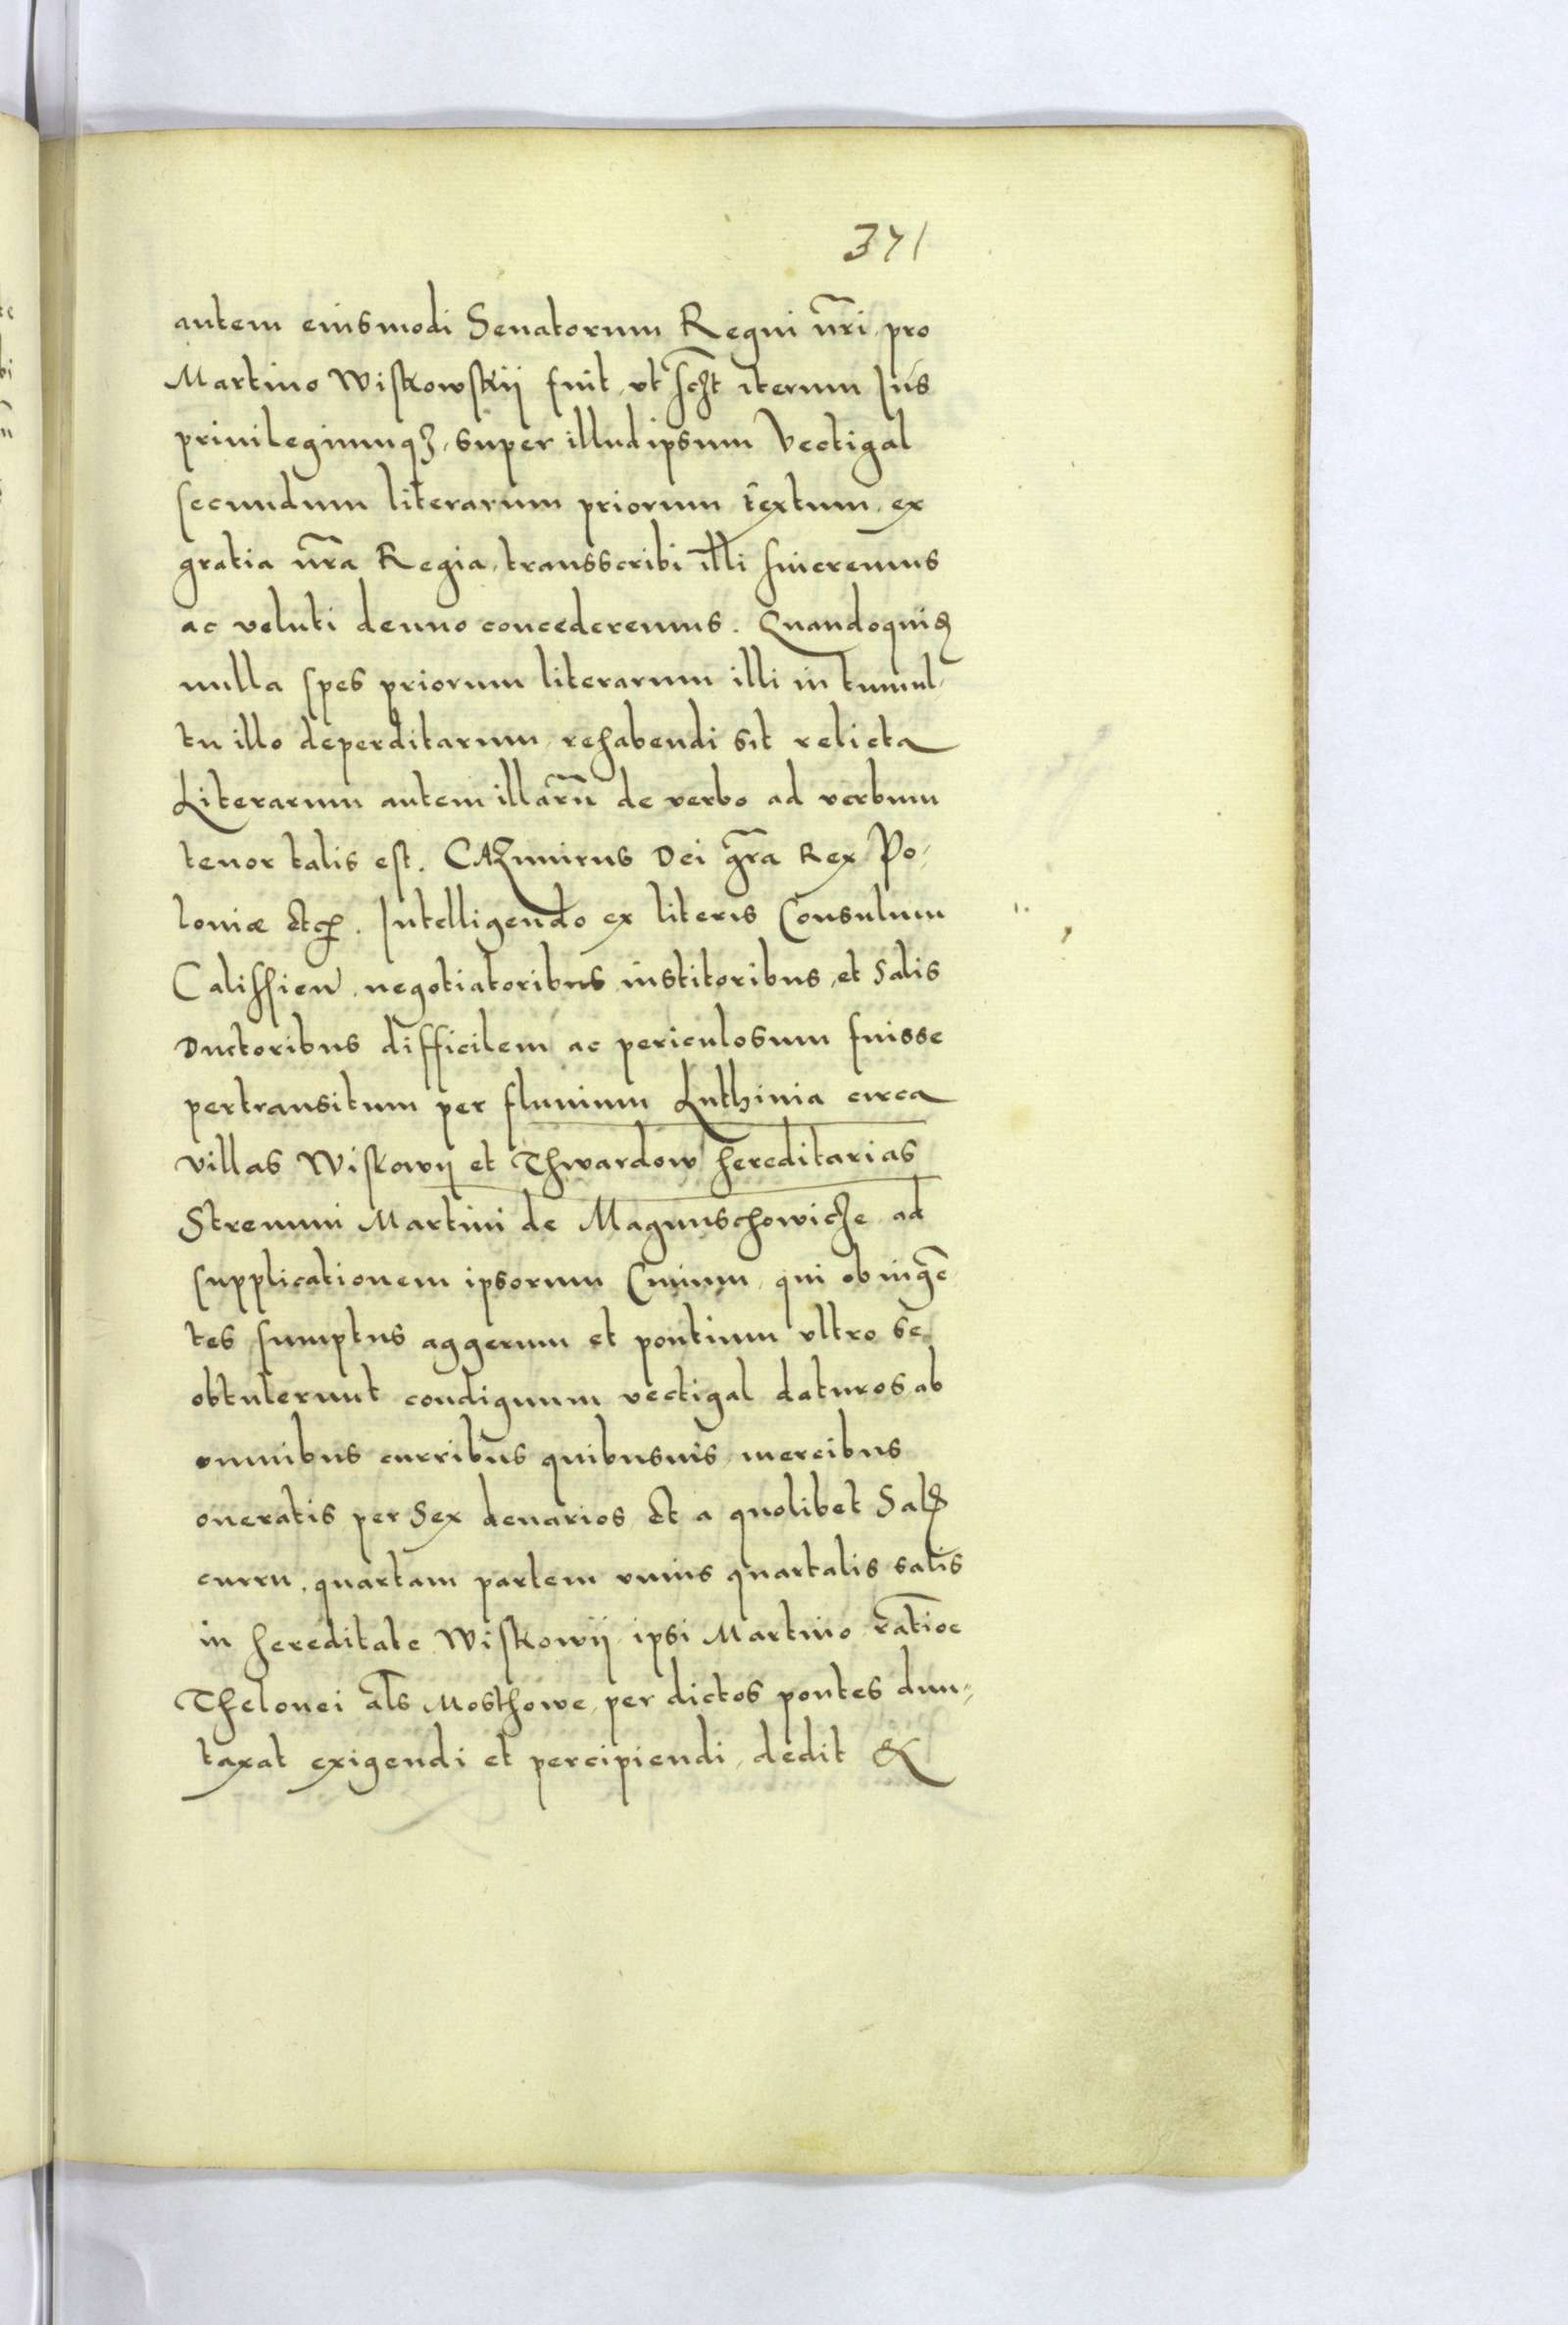 371
autem eiusmodi Senatorum Regni nr̃i pro
Martino Wiskowskij fuit, vt iterum Jus
priuilegiumqȝ, super illud ipsum Vectigal
secundum literarum priorum textum, ex
gratia nr̃a Regia, transscribi illi sineremus
ac veluti denuo concederemus. Quandoquiđ
nulla spes priorum literarum illi in tumul-
tu illo deperditarum, rehabendi sit relicta
Literarum autem illarũ de verbo ad verbum
tenor talis est. CAZimirus Dei gr̃a Rex Po-
loniæ Etc. Intelligendo ex literis Consulum
Calissien̄, negotiatoribus institoribus, et Salis
Ductoribus difficilem ac periculosum fuisse
pertransitum per fluuium Luthinia circa
villas Wiskowij et Thwardow hereditarias
Strenui Martini de Magnuschowicze ad
supplicationem ipsorum Ciuium, qui ob ingẽ-
tes sumptus aggerum et pontium vltro se
obtulerunt condignum vectigal daturos ab
omnibus curribus quibusuis mercibus
oneratis per Sex denarios Et a quolibet Sal̄
curru, quartam partem vnius quartalis salis
in hereditate Wiskowij ipsi Martino rat̃ioe
Thelonei al̃s Mosthowe, per dictos pontes dun-
taxat exigendi et percipiendi, dedit &